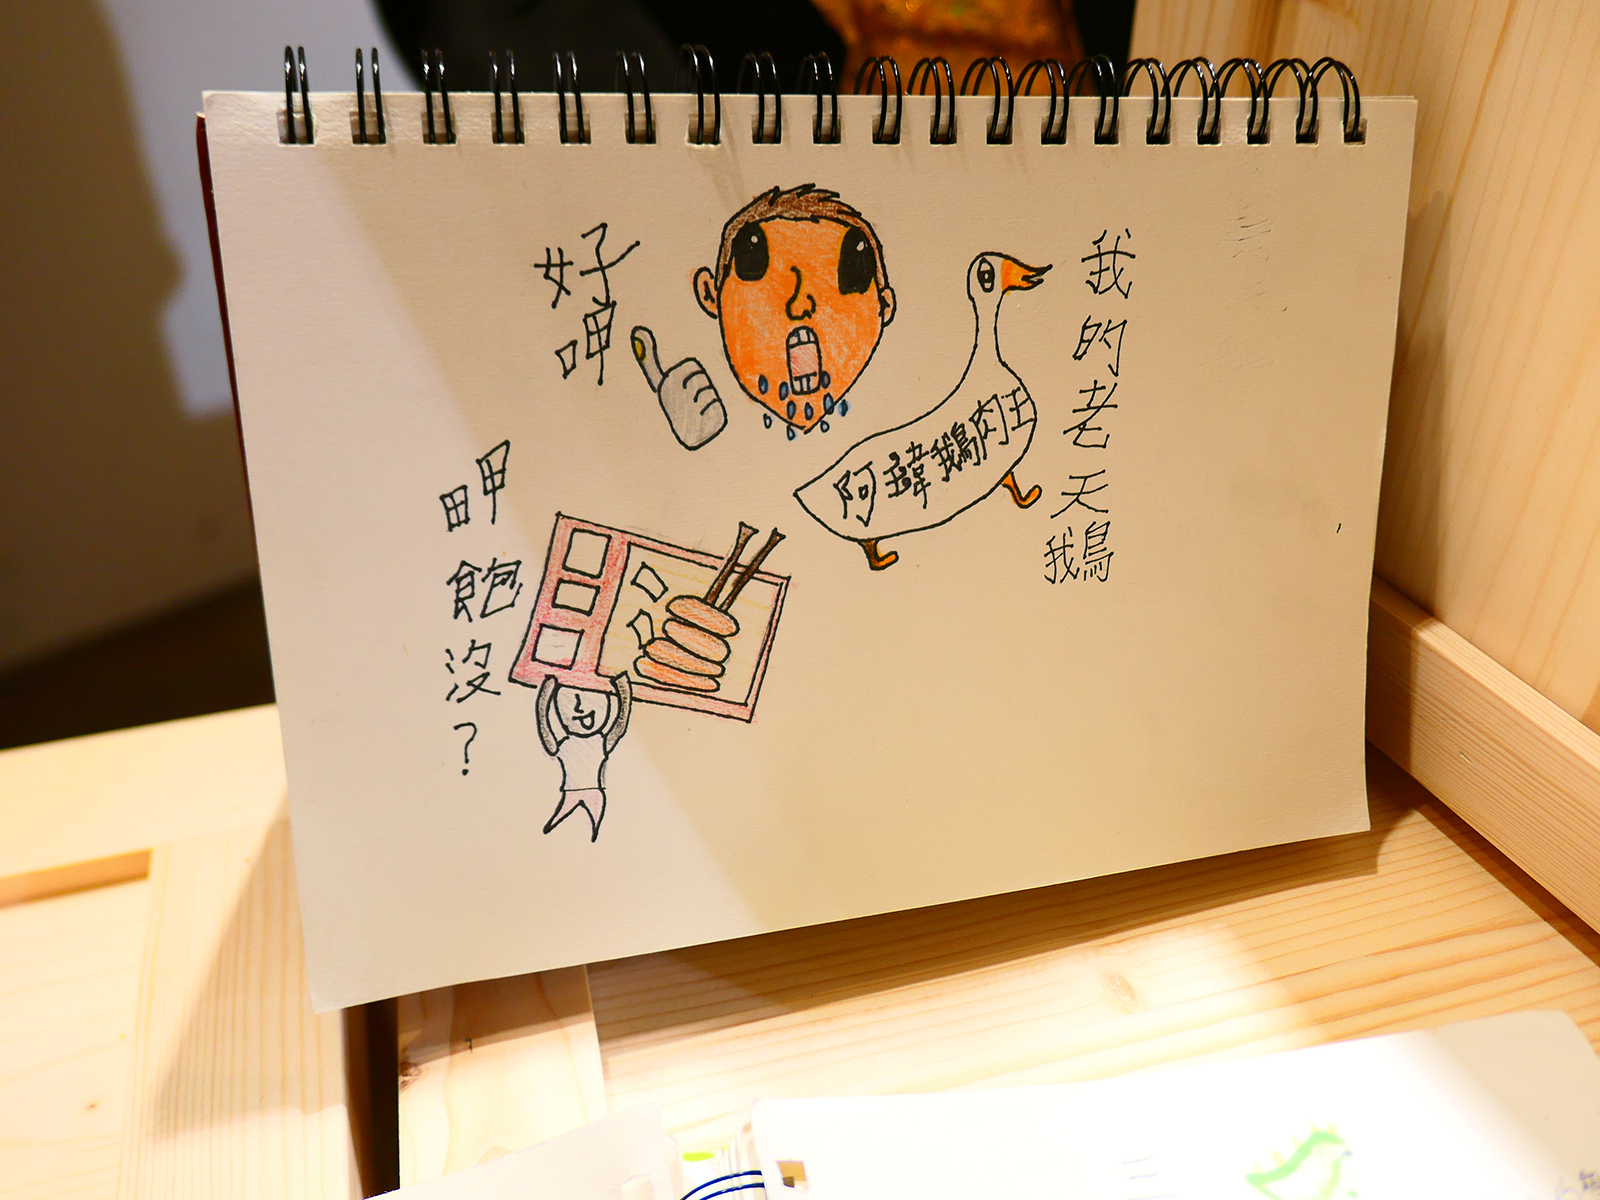 我的老天鵝
阿瑋鵝肉王
好呷
呷飽沒?